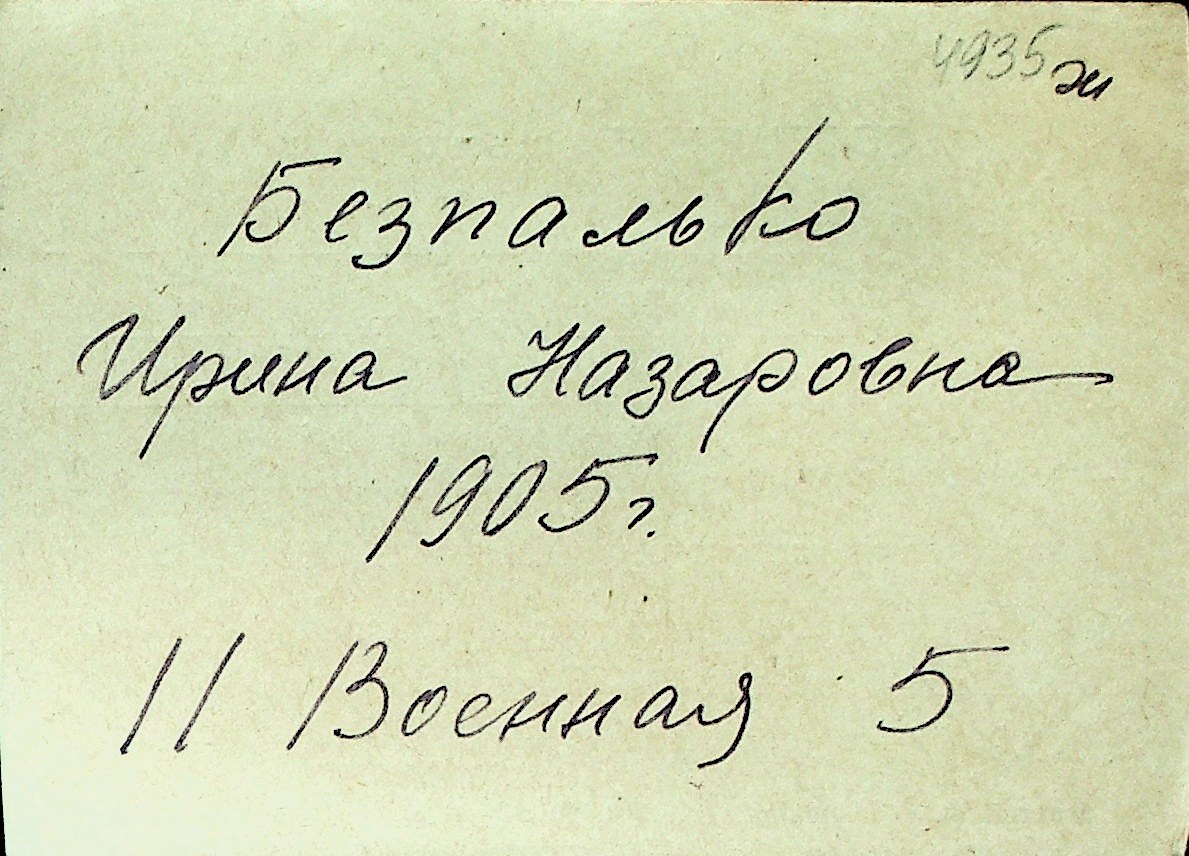 4935 ж
Безпалько
Ирина Назаровна
1905 г.
11 Военная 5